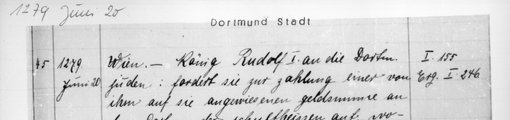 1279 Juni 20
Dortmund Stadt
45 1279 Wien. — König Rudolf I. an die Dortm. I. 155
Juni 20 juden : fordert sie zur zahlung einer von Erg. I 246.
ihm auf sie angewiesenen geldsumme an
den schultheissen auf, wo-